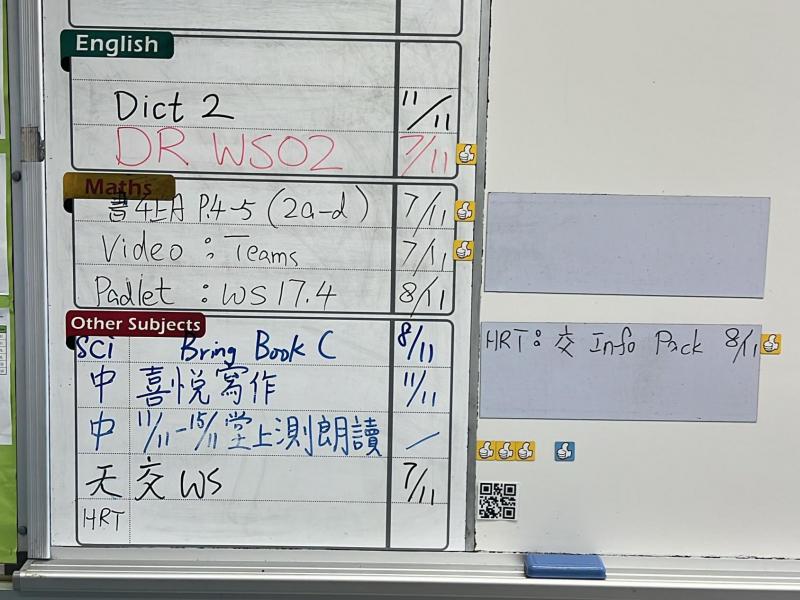 English
Dict 2 11/11
DR WS02 7/11
Maths
書4上A P.4-5 (2a-d) 7/11
Video : Teams 7/11
Padlet : WS 17.4 8/11
Other Subjects
SCi Bring Book C 8/11
中 喜悅寫作 11/11
中 11/11-15/11 堂上測朗讀
天 交 WS 7/11
HRT
HRT: 交 Info Pack 8/11